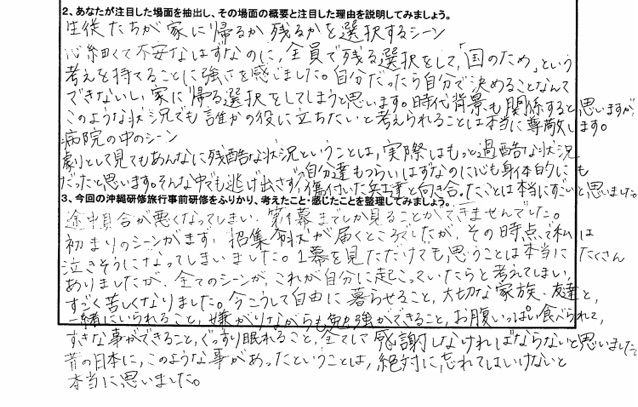 2、あなたが注目した場面を抽出し、その場面の概要と注目した理由を説明してみましょう。
生徒たちが家に帰るか残るかを選択するシーン
心細くて不安なはずなのに、全員で残る選択をして、「国のため」という
考えを持てることに強さを感じました。自分だったら自分で決めることなんて
できないし、家に帰る選択をしてしまうと思います。時代背景も関係すると思いますが、
このような状況でも誰かの役に立ちたいと考えられることは本当に尊敬します。
病院の中のシーン
劇として見てもあんなに残酷な状況ということは、実際はもっと過酷な状況
だったと思います。そんな中でも逃げ出さず、自分達もつらいはずなのに心も身体的にも
傷付いた兵士達と向き合ったことは本当にすごいと思いました
3、今回の沖縄研修旅行事前研修をふりかり、考えたこと・感じたことを整理してみましょう。
途中具合が悪くなってしまい、第1幕までしか見ることができませんでした。
初まりのシーンがまず、招集令状が届くところでしたが、その時点で私は
泣きそうになってしまいました。1幕を見ただけでも思うことは本当にたくさん
ありましたが、全てのシーンが、これが自分に起こっていたらと考えてしまい、
すごく苦しくなりました。今こうして自由に暮らせること、大切な家族・友達と、
一緒にいられること、嫌がりながらも勉強ができること、お腹いっぱい食べられて、
すきな事ができること、ぐっすり眠れること、全てに感謝しなければならないと思いました
昔の日本に、このような事があったということは、絶対に忘れてはいけないと
本当に思いました。